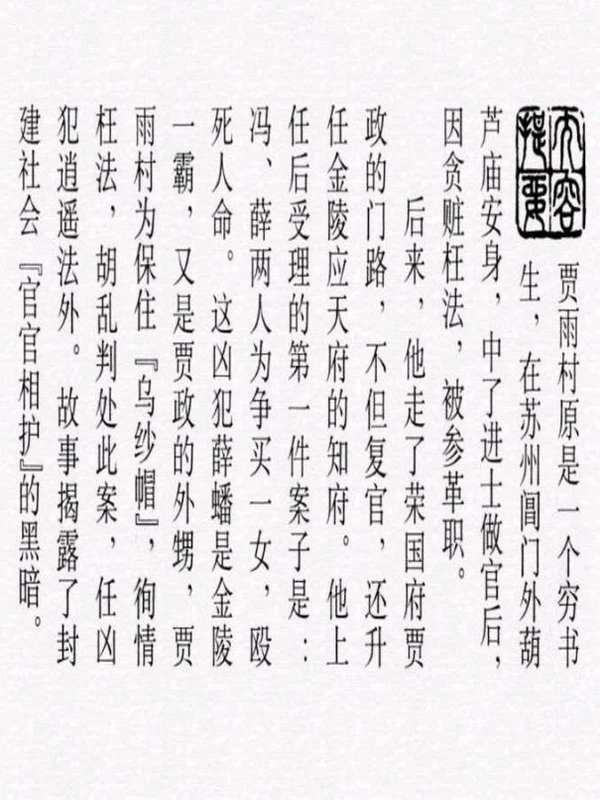 内容
提要
贾雨村原是一个穷书
生，在苏州阊门外葫
芦庙安身，中了进士做官后，
因贪赃枉法，被参革职。
后来，他走了荣国府贾
政的门路，不但复官，还升
任金陵应天府的知府。他上
任后受理的第一件案子是：
冯、薛两人为争买一女，殴
死人命。这凶犯薛蟠是金陵
一霸，又是贾政的外甥，贾
雨村为保住『乌纱帽』，徇情
枉法，胡乱判处此案，任凶
犯逍遥法外。故事揭露了封
建社会『官官相护』的黑暗。